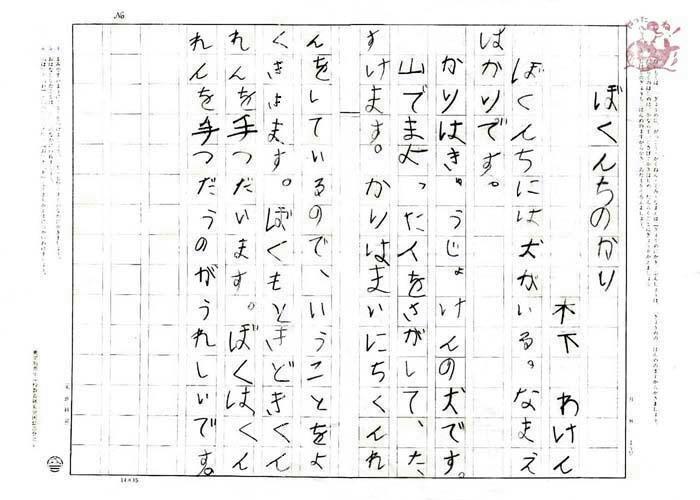 No
やったね!
ぼくんちのかり
木下 わけん
ぼくんちには犬がいる。なまえ
はかりです。
かりはきゅうじょけんの犬です。
山でまよった人をさがして、た
すけます。かりはまいにちくんれ
んをしているので、いうことをよ
くききます。ぼくもときどきくん
れんを手つだいます。ぼくはくん
れんを手つだうのがうれしいです。
14×15